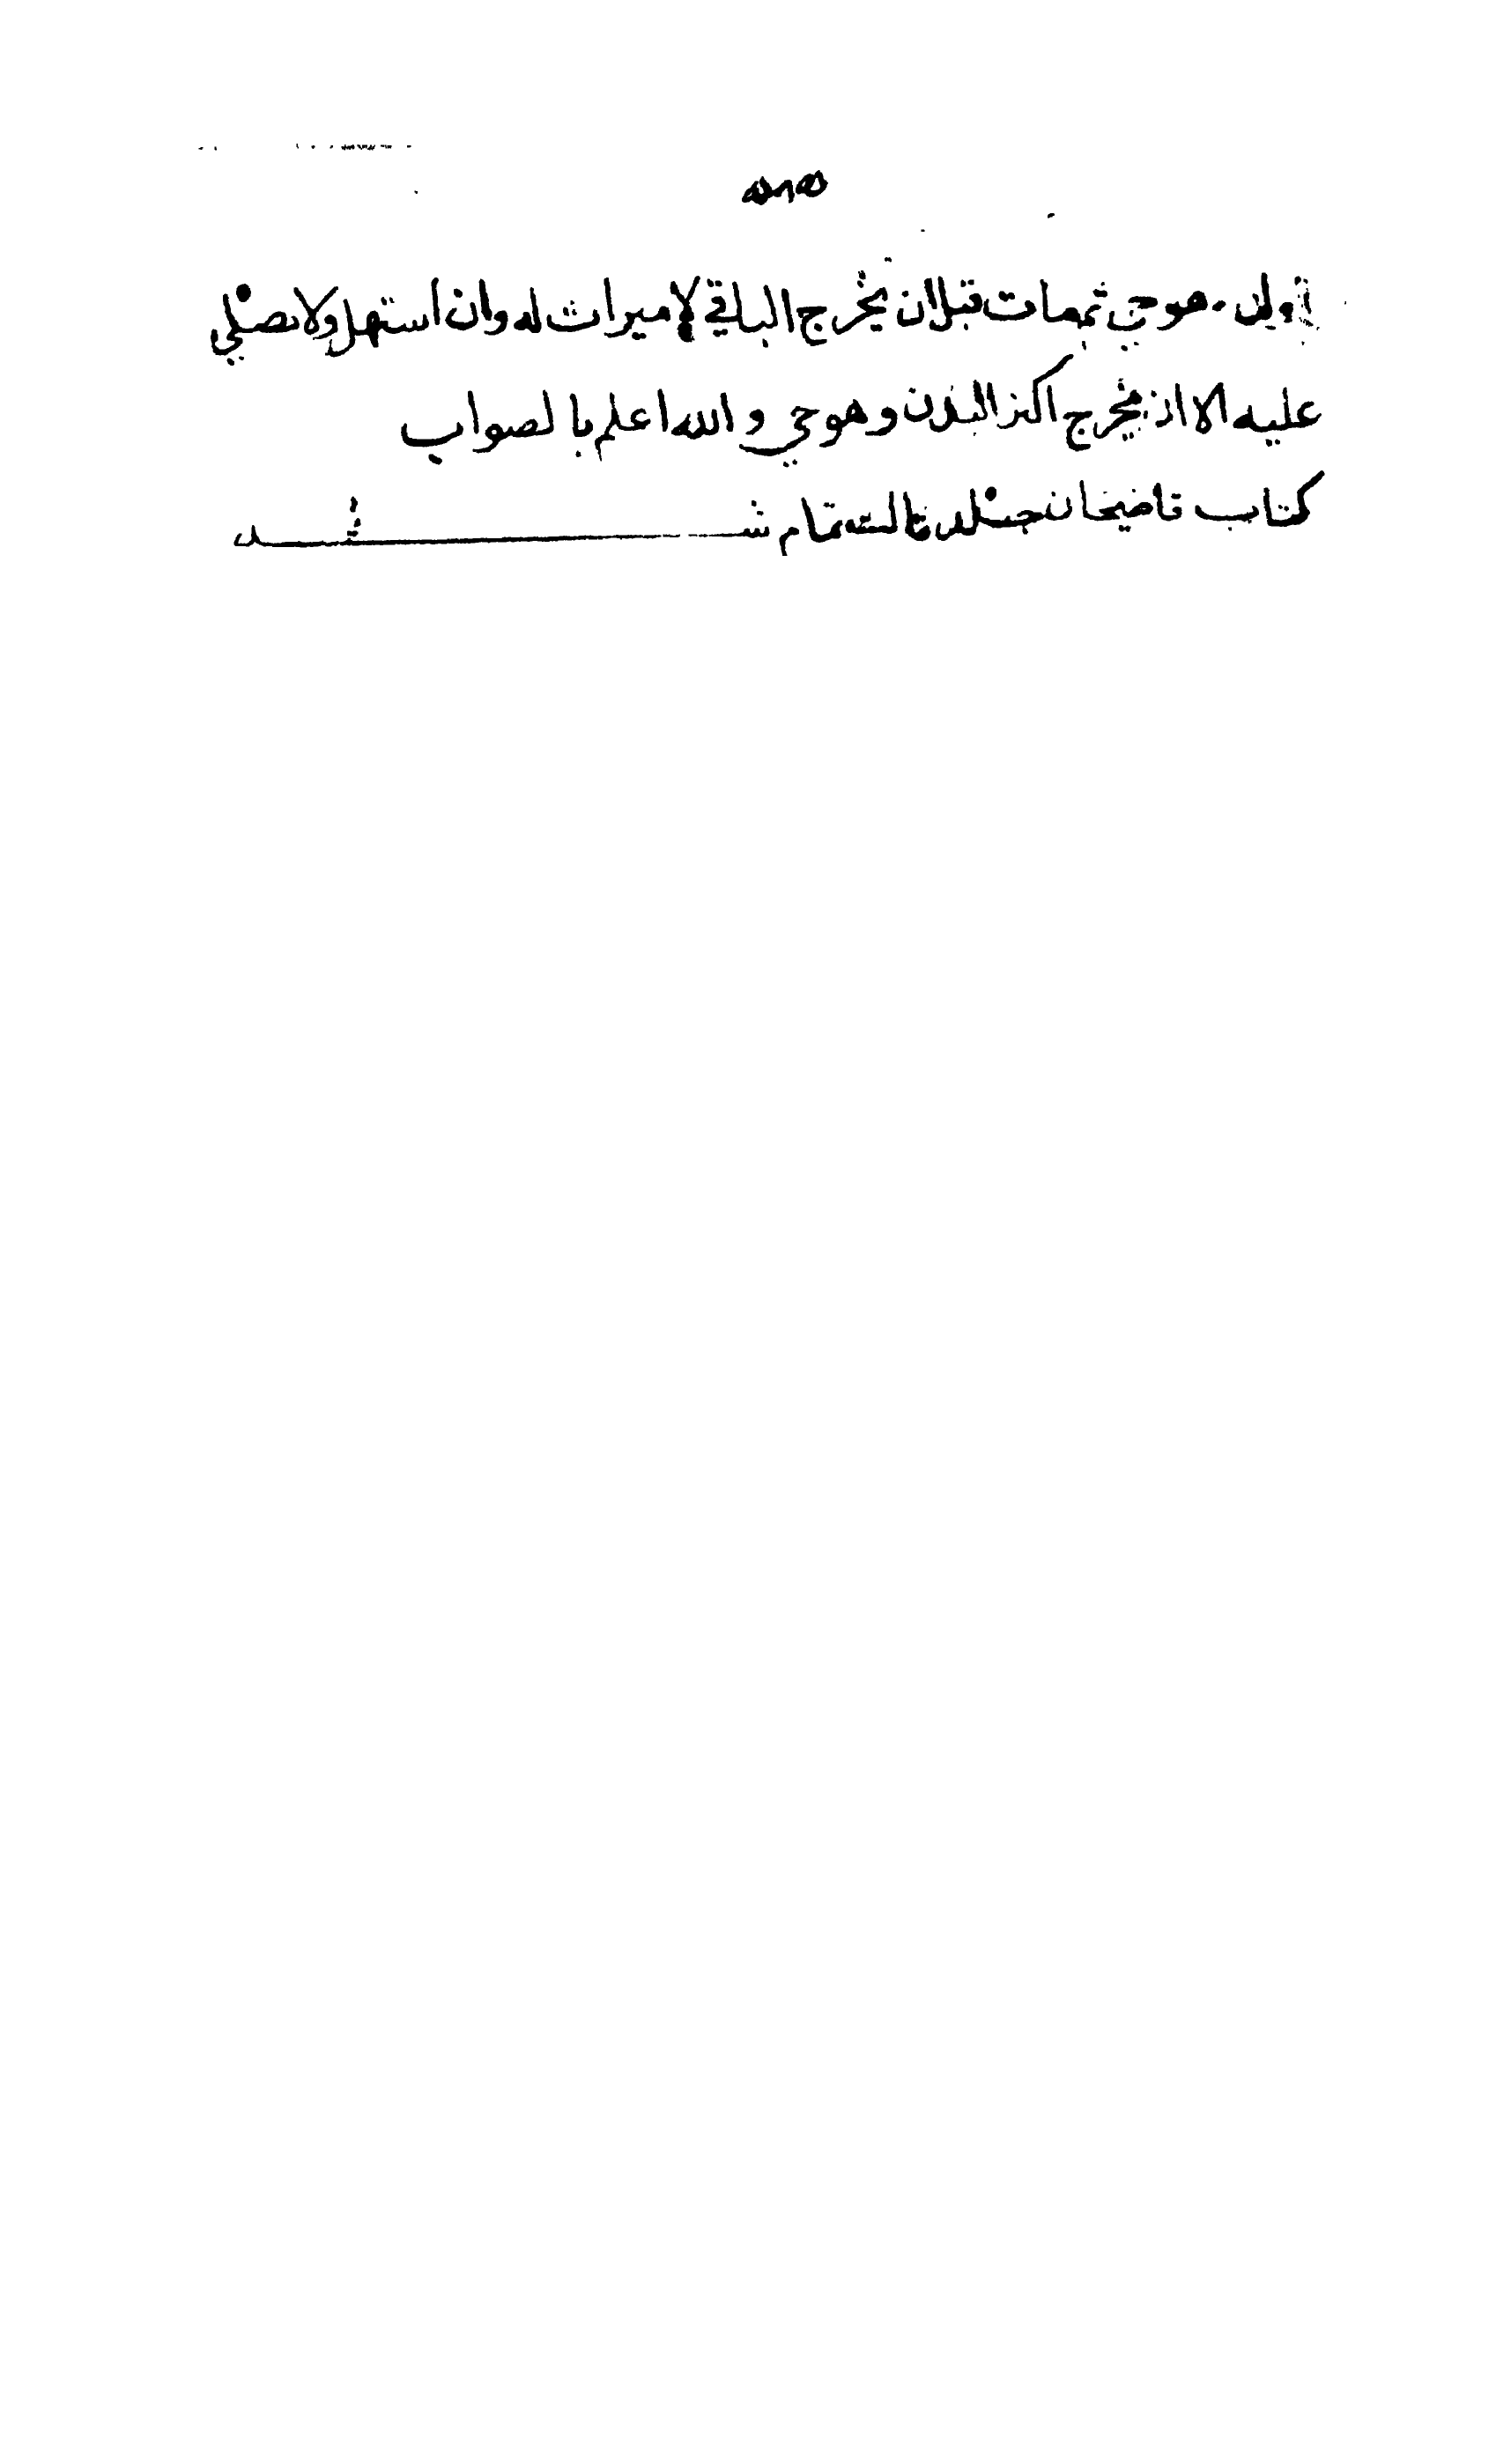 ٥٨٥
وهو حي ثم مات قبل ان يخرج الباقي لا ميراث له وان استهل ولا يصلي
عليه الا ان يخرج اكثر البدن وهو حي والله اعلم بالصواب
كتاب قاضيخان جلد ثالث تمام شد